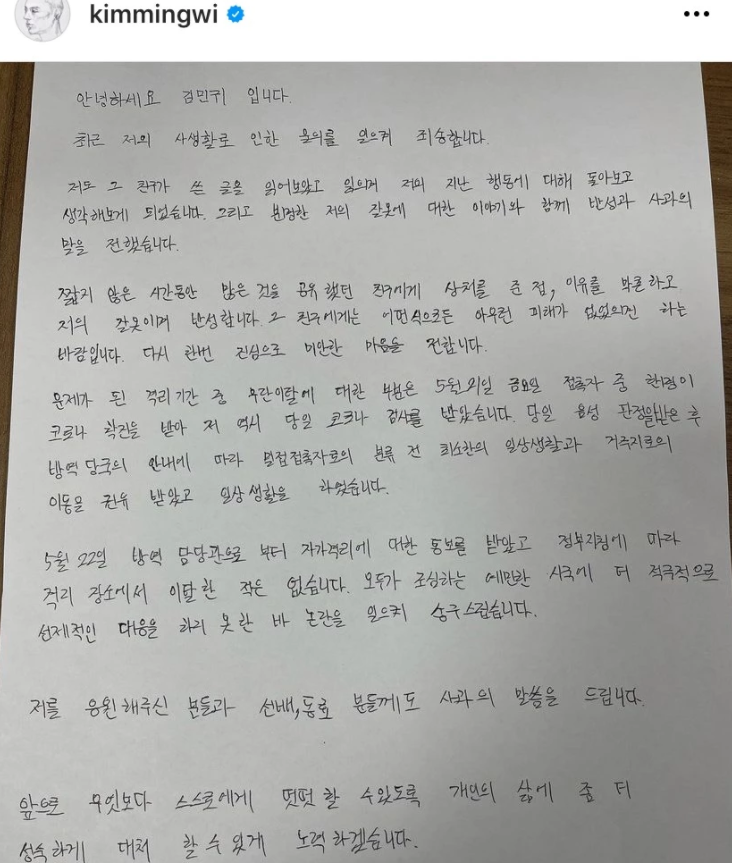 kimmingwi
안녕하세요 김민귀 입니다.
최근 저의 사생활로 인한 물의를 일으켜 죄송합니다.
저도 그 친구가 쓴 글을 읽어보았고 읽으며 저의 지난 행동에 대해 돌아보고
생각해보게 되었습니다. 그리고 분명한 저의 잘못에 대한 이야기와 함께 반성과 사과의
말을 전했습니다.
짧지 않은 시간동안 많은 것을 공유 했던 친구에게 상처를 준 점, 이유를 막론하고
저의 잘못이며 반성합니다. 그 친구에게는 어떤식으로든 아무런 피해가 없었으면 하는
바람입니다. 다시 한번 진심으로 미안한 마음을 전합니다.
문제가 된 격리기간 중 무단이탈에 대한 부분은 5월 21일 금요일 접촉자 중 한명이
코로나 확진을 받아 저 역시 당일 코로나 검사를 받았습니다. 당일 음성 판정을받은 후
방역 당국의 안내에 따라 밀접접촉자로의 분류 전 최소한의 일상생활과 거주지로의
이동을 권유 받았고 일상 생활을 하였습니다.
5월 22일 방역 담당관으로 부터 자가격리에 대한 통보를 받았고 정부지침에 따라
격리 장소에서 이탈한 적은 없습니다. 모두가 조심하는 예민한 시국에 더 적극적으로
선제적인 대응을 하지 못한 바 논란을 일으켜 송구스럽습니다.
저를 응원해주신 분들과 선배, 동료 분들께도 사과의 말씀을 드립니다.
앞으로 무엇보다 스스로에게 떳떳 할 수있도록 개인의 삶에 좀 더
성숙하게 대처 할 수 있게 노력하겠습니다.